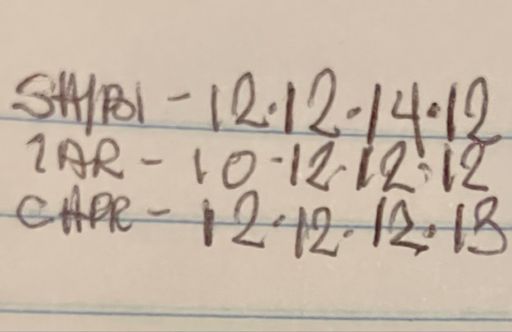 SH/BI - 12.12.14.12
IAR - 10.12.12.12
CHPR - 12.12.12.13